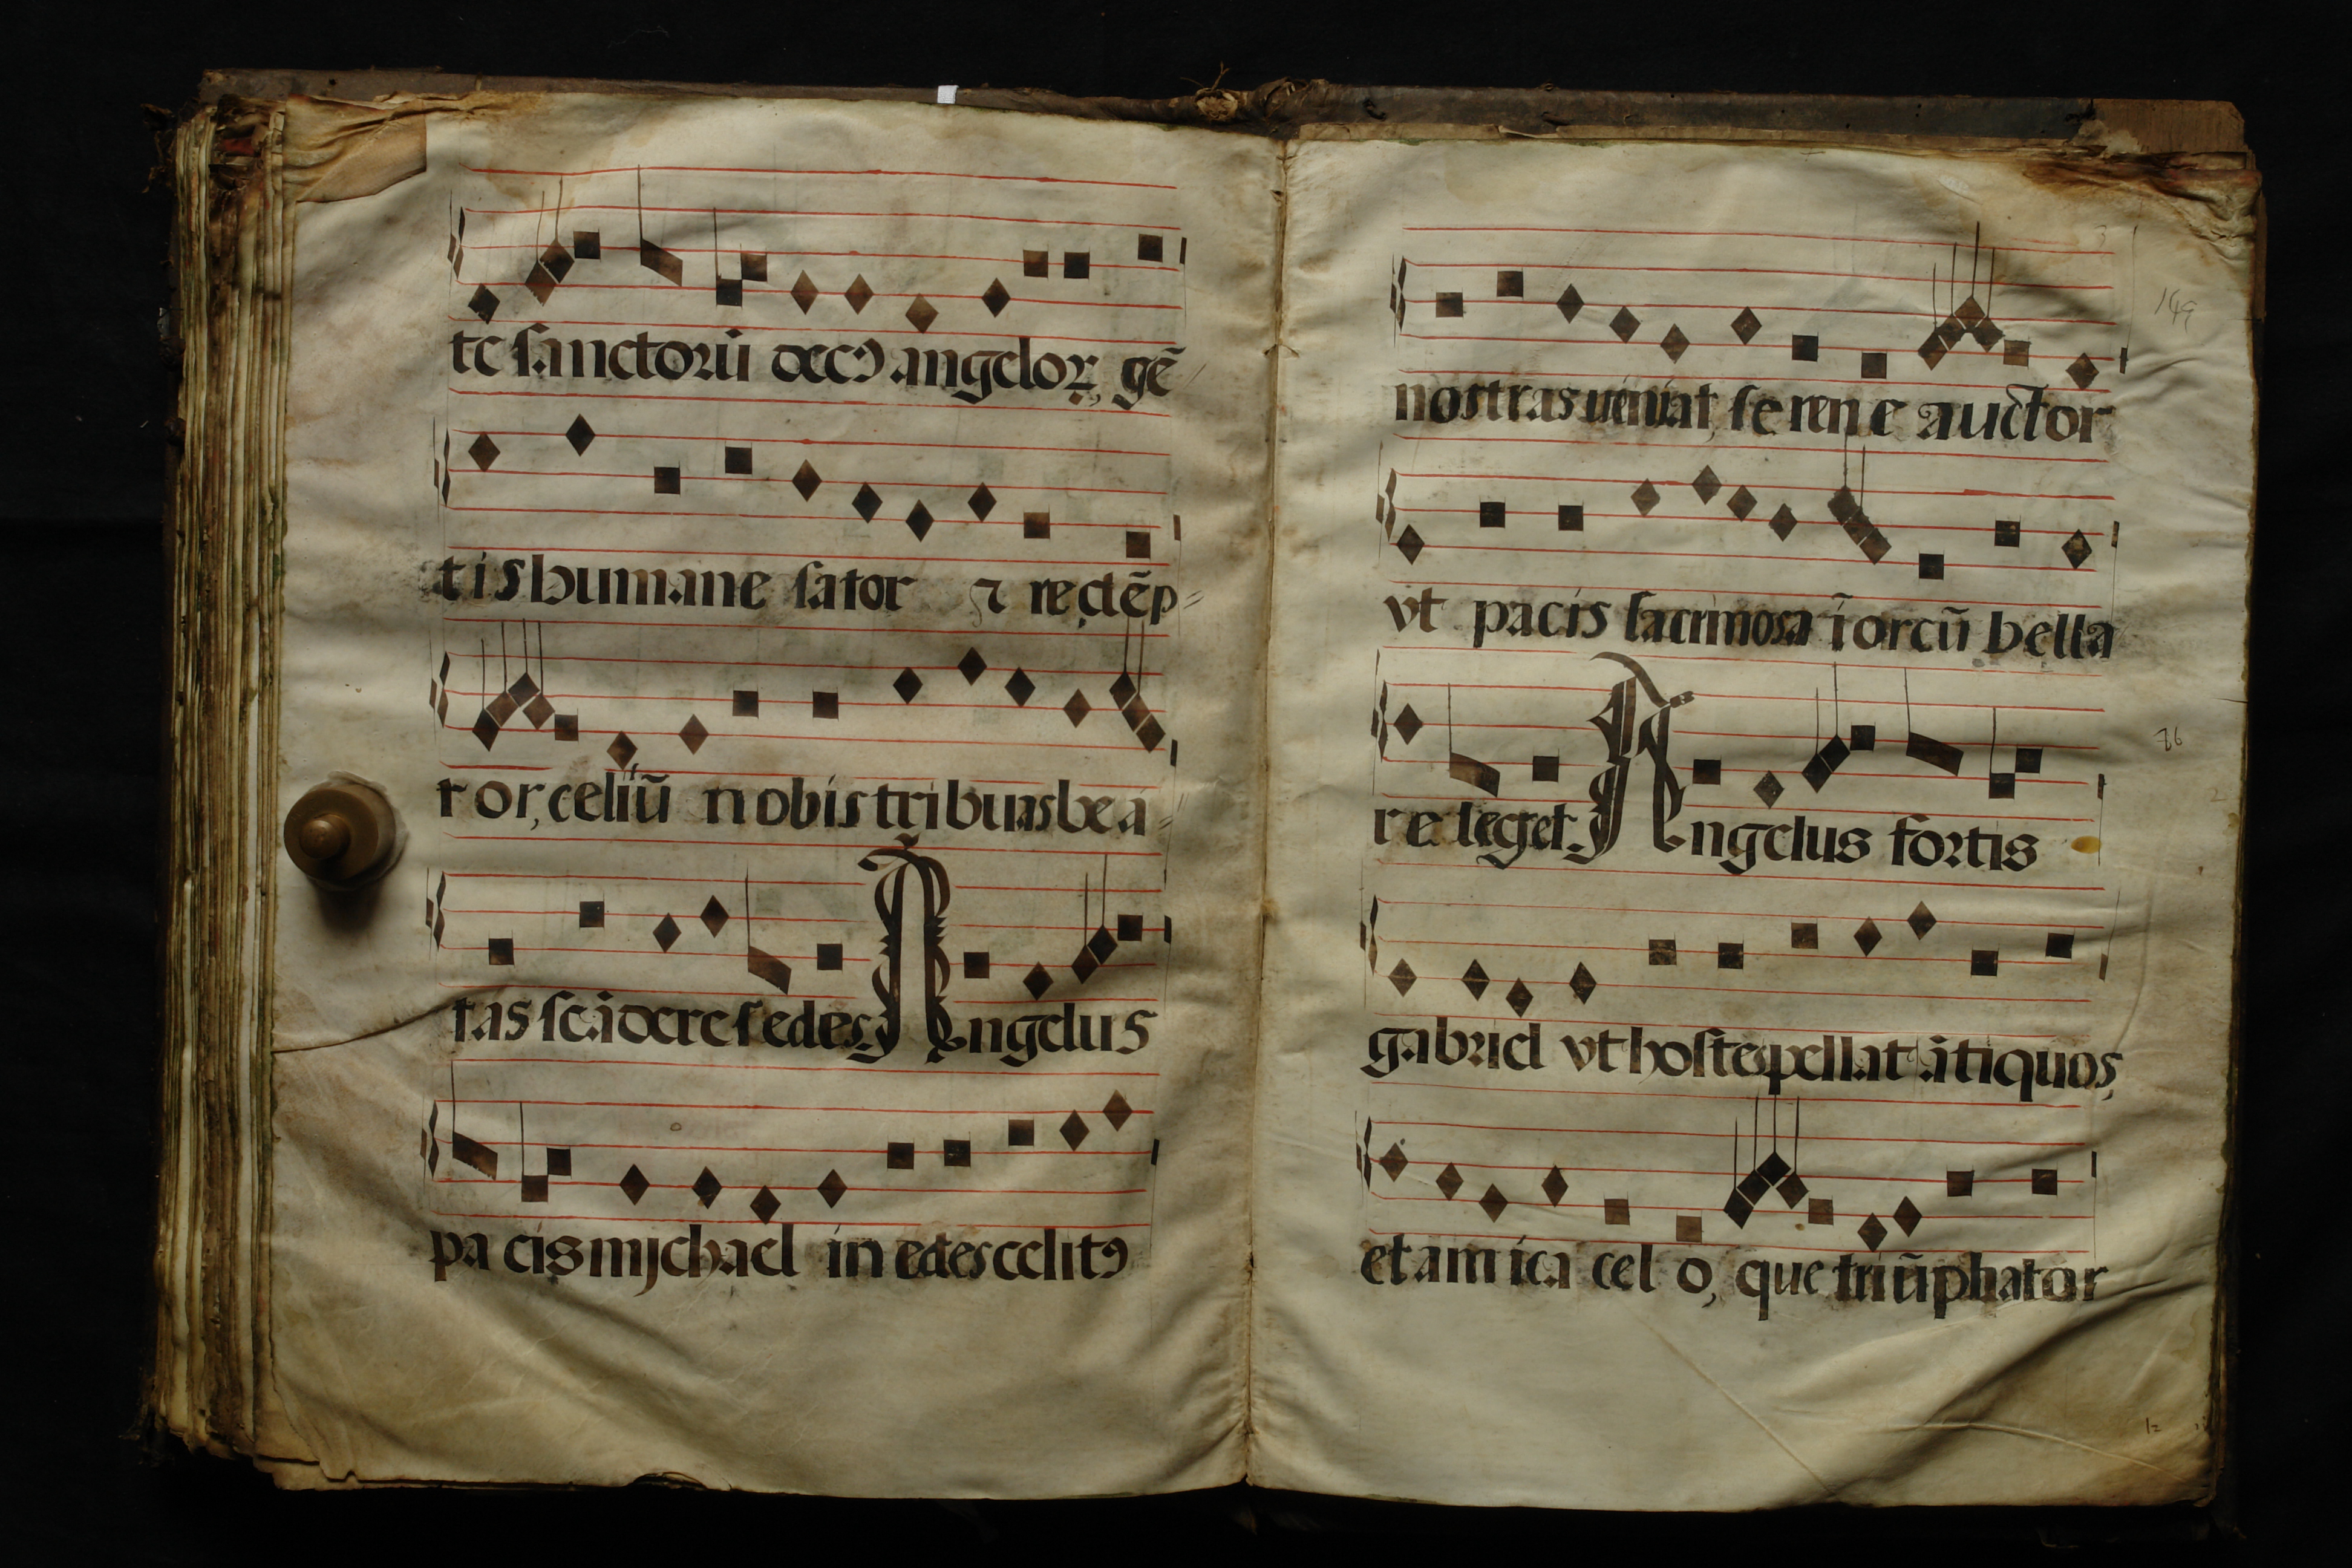 te sanctorū decꝰ angeloꝝ, gē
tis humane sator ⁊ redēp
tor, celitū nobis tribuas bea
tas scādere sedes. Angelus
pacis mijchael in edes celitꝰ
3
149
nostras ueniat, serene auctor
vt pacis lacrimosa ī orcū bella
76
releget. Angelus fortis
gabriel vt hostes pellat ātiquos,
et amica celo, que triūphator